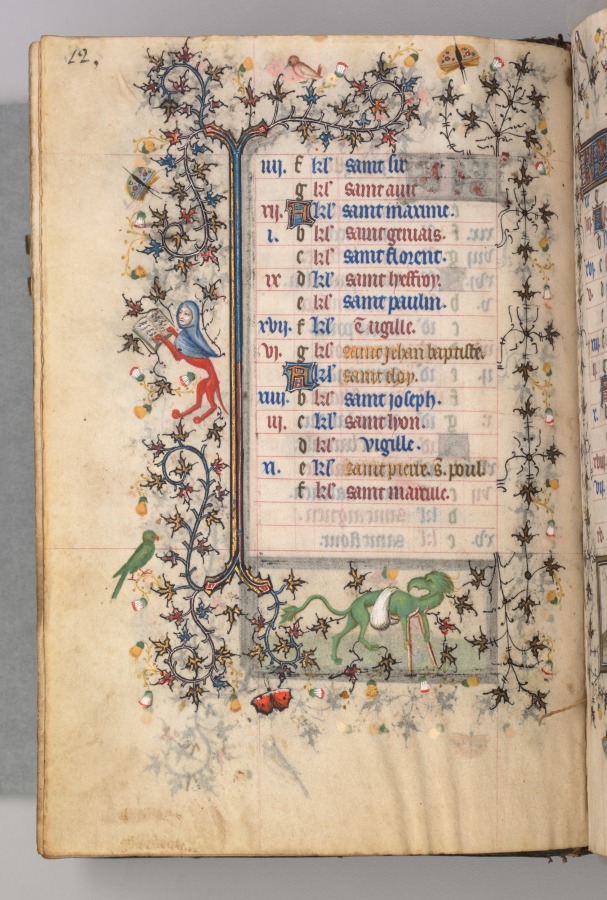 12.
iiij. f kl' saint cir
g kl' saint auit
xij. A kl' saint maxime.
i. b kl' saint geruais.
c kl' saint florent.
ix d kl' saint leffroy.
e kl' saint paulin.
xvij. f kl' vigille.
vi. g kl' saint jehan baptiste.
A kl' saint eloy.
xiiij. b kl' saint joseph.
iij. c kl' saint lyon.
d kl' vigille.
xi. e kl' saint pierre. s. poul
f kl' saint marcial.